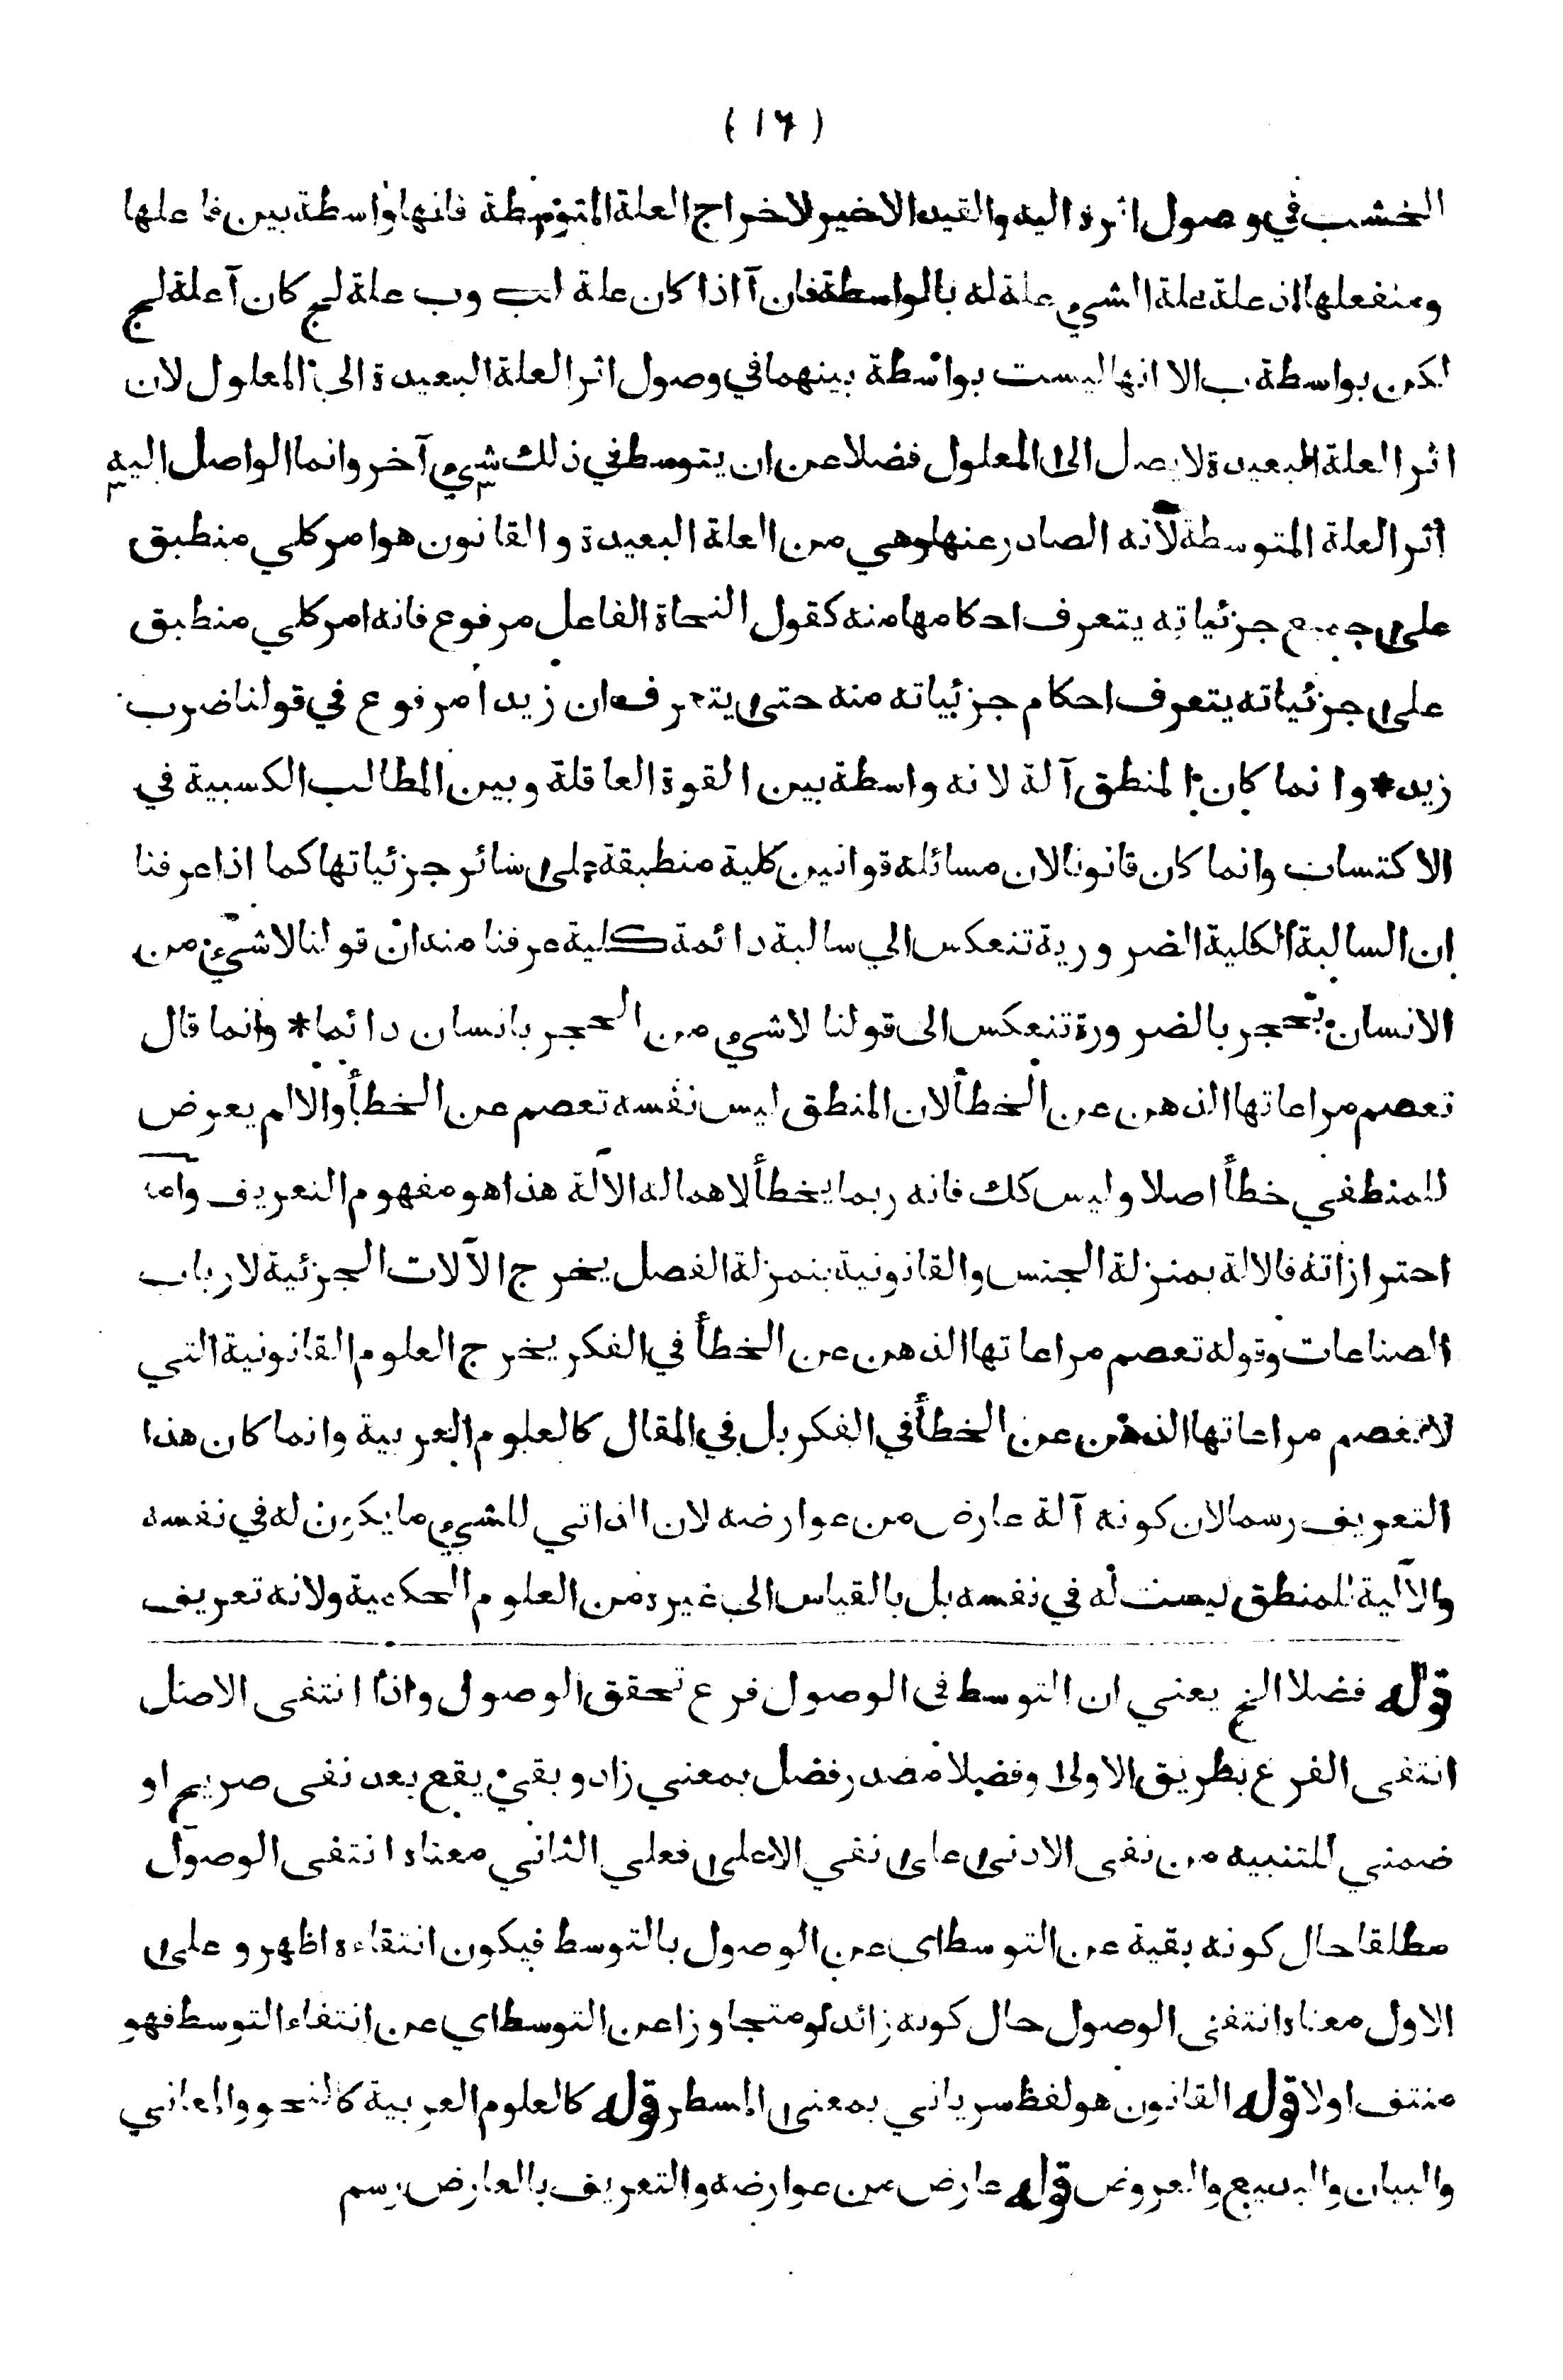 ( ١٦ )
الخشب في وصول اثره اليه والقيد الاخير لاخراج العلة المتوسطة فانها واسطة بين فاعلها
ومنفعلها اذ علة علة الشيء علة له بالواسطة فان آ اذا كان علة لب وب علة لج كان آ علة لج
لكن بواسطة ب الا انها ليست بواسطة بينهما في وصول اثر العلة البعيدة الى المعلول لان
اثر العلة البعيدة لا يصل الى المعلول فضلا عن ان يتوسط في ذلك شيء آخر وانما الواصل اليه
أثر العلة المتوسطة لانه الصادر عنها وهي من العلة البعيدة و القانون هو امر كلي منطبق
على جميع جزئياته يتعرف احكامها منه كقول النحاة الفاعل مرفوع فانه امر كلي منطبق
على جزئياته يتعرف احكام جزئياته منه حتى يتعرف ان زيدا مرفوع في قولنا ضرب
زيد * وانما كان المنطق آلة لانه واسطة بين القوة العاقلة وبين المطالب الكسبية في
الاكتساب وانما كان قانونا لان مسائله قوانين كلية منطبقة على سائر جزئياتها كما اذا عرفنا
ان السالبة الكلية الضرورية تنعكس الي سالبة دائمة كلية عرفنا منه ان قولنا لا شيء من
الانسان بحجر بالضرورة تنعكس الى قولنا لا شيء من الحجر بانسان دائما * وانما قال
تعصم مراعاتها الذهن عن الخطأ لان المنطق ليس نفسه تعصم عن الخطأ والا لم يعرض
للمنطقي خطأ اصلا وليس كك فانه ربما يخطأ لاهماله الآلة هذا هو مفهوم التعريف واما
احترازاته فالالة بمنزلة الجنس والقانونية بمنزلة الفصل يخرج الآلات الجزئية لارباب
الصناعات وقوله تعصم مراعاتها الذهن عن الخطأ في الفكر يخرج العلوم القانونية التي
لا تعصم مراعاتها الذهن عن الخطأ في الفكر بل في المقال كالعلوم العربية وانما كان هذا
التعريف رسما لان كونه آلة عارض من عوارضه لان الذاتي للشيء ما يكون له في نفسه
والآلية للمنطق ليست له في نفسه بل بالقياس الى غيره من العلوم الحكمية ولانه تعريف
قوله فضلا الخ يعني ان التوسط في الوصول فرع تحقق الوصول واذا انتفى الاصل
انتفى الفرع بطريق الاولى وفضلا مصدر فضل بمعني زاد و بقي يقع بعد نفى صريح او
ضمني للتنبيه من نفى الادنى على نفي الاعلى فعلي الثاني معناه انتفى الوصول
مطلقا حال كونه بقية عن التوسط اى عن الوصول بالتوسط فيكون انتقاءه اظهر و على
الاول معناه انتفى الوصول حال كونه زائدا ومتجاوزا عن التوسط اي عن انتفاء التوسط فهو
منتف اولا قوله القانون هو لفظ سرياني بمعنى المسطر قوله كالعلوم العربية كالنحو والمعاني
والبيان والبديع والعروض قوله عارض من عوارضه والتعريف بالعارض رسم